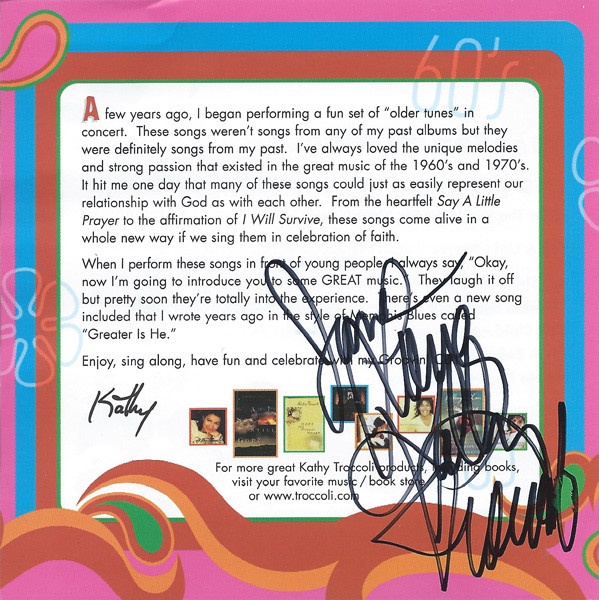 60's
A few years ago, I began performing a fun set of "older tunes" in
concert. These songs weren't songs from any of my past albums but they
were definitely songs from my past. I've always loved the unique melodies
and strong passion that existed in the great music of the 1960's and 1970's.
It hit me one day that many of these songs could just as easily represent our
relationship with God as with each other. From the heartfelt Say A Little
Prayer to the affirmation of I Will Survive, these songs come alive in a
whole new way if we sing them in celebration of faith.
When I perform these songs in front of young people, I always say, "Okay,
now I'm going to introduce you to some GREAT music." They laugh it off
but pretty soon they're totally into the experience. There's even a new song
included that I wrote years ago in the style of Memphis Blues called
"Greater Is He."
Enjoy, sing along, have fun and celebrate with my Groovin' CD!
Kathy
For more great Kathy Troccoli products, including books,
visit your favorite music / book store
or www.troccoli.com